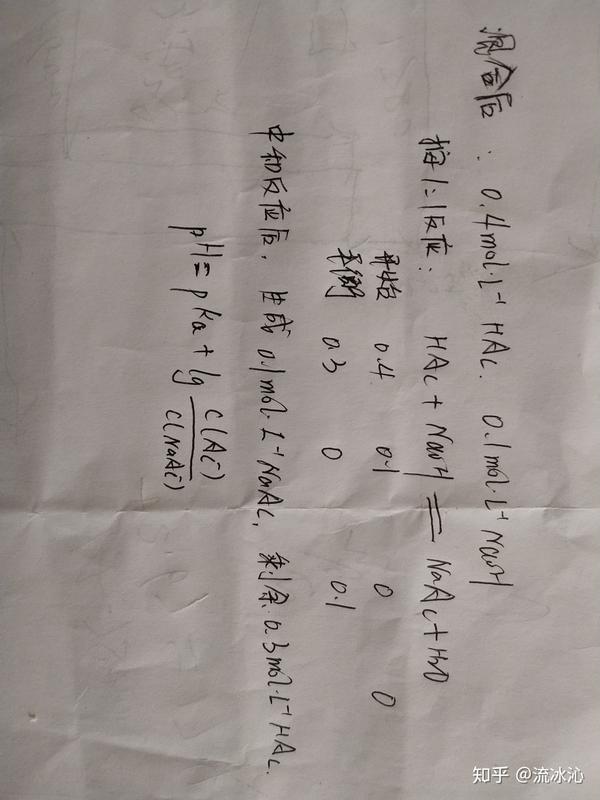 混合后: 0.4mol·L⁻¹ HAc. 0.1mol·L⁻¹ NaOH
按1:1反应: HAc + NaOH = NaAc + H2O
开始 0.4 0.1 0 0
平衡 0.3 0 0.1
中和反应后, 生成 0.1mol·L⁻¹ NaAc, 剩余 0.3mol·L⁻¹ HAc.
pH = pKa + lg c(Ac⁻)/c(NaAc)
知乎 @流冰沁